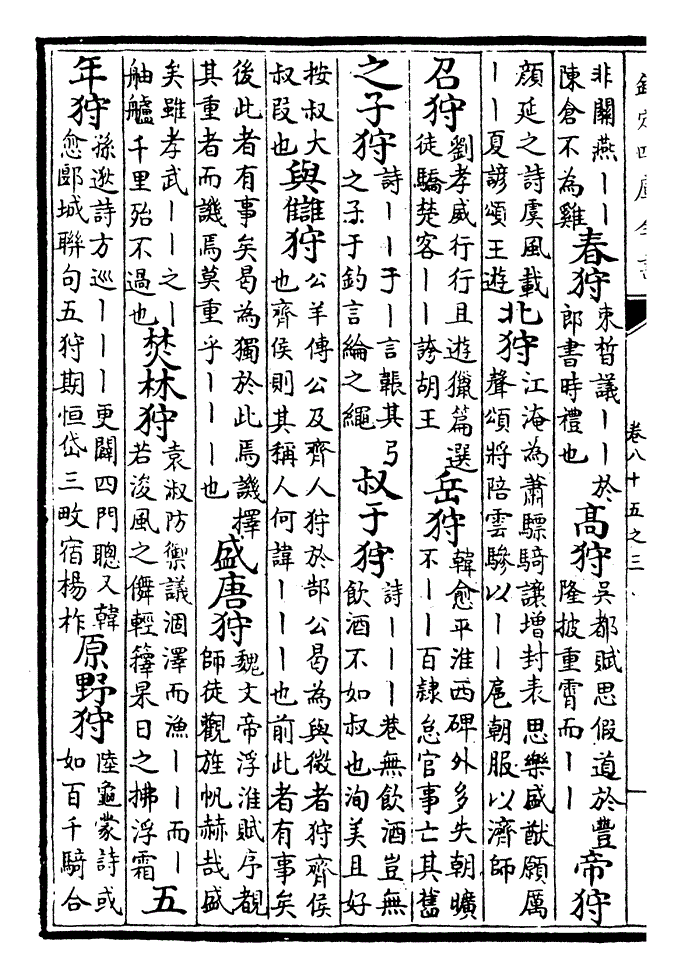 欽定四庫全書 卷八十五之三
非關燕丨丨陳倉不為雞 春狩 束晳議丨丨於郎書時禮也 高狩 吳都賦思假道於豐隆披重霄而丨丨 帝狩
顔延之詩虞風載丨丨夏諺頌王遊 北狩 江淹為蕭驃騎讓增封表思樂盛猷願厲聲頌將陪雲驂以丨丨扈朝服以濟師
召狩 劉孝威行行且遊獵篇選徒驕楚客丨丨誇胡王 岳狩 韓愈平淮西碑外多失朝曠不丨丨百隷怠官事亡其舊
之子狩 詩丨丨于丨言韔其弓之子于釣言綸之繩 叔于狩 詩丨丨丨巷無飲酒豈無飲酒不如叔也洵美且好
按叔大叔段也 與讎狩 公羊傳公及齊人狩於郜公曷為與微者狩齊侯也齊侯則其稱人何諱丨丨丨也前此者有事矣
後此者有事矣曷為獨於此焉譏擇其重者而譏焉莫重乎丨丨丨也 盛唐狩 魏文帝浮淮賦序觀師徒觀旌帆赫哉盛
矣雖孝武丨丨之丨舳艫千里殆不過也 焚林狩 袁淑防禦議涸澤而漁丨丨而丨若浚風之儛輕籜杲日之拂浮霜 五
年狩 孫逖詩方巡丨丨丨更闢四門聰又韓愈郾城聯句五狩期恒岱三畋宿楊柞 原野狩 陸龜蒙詩或如百千騎合